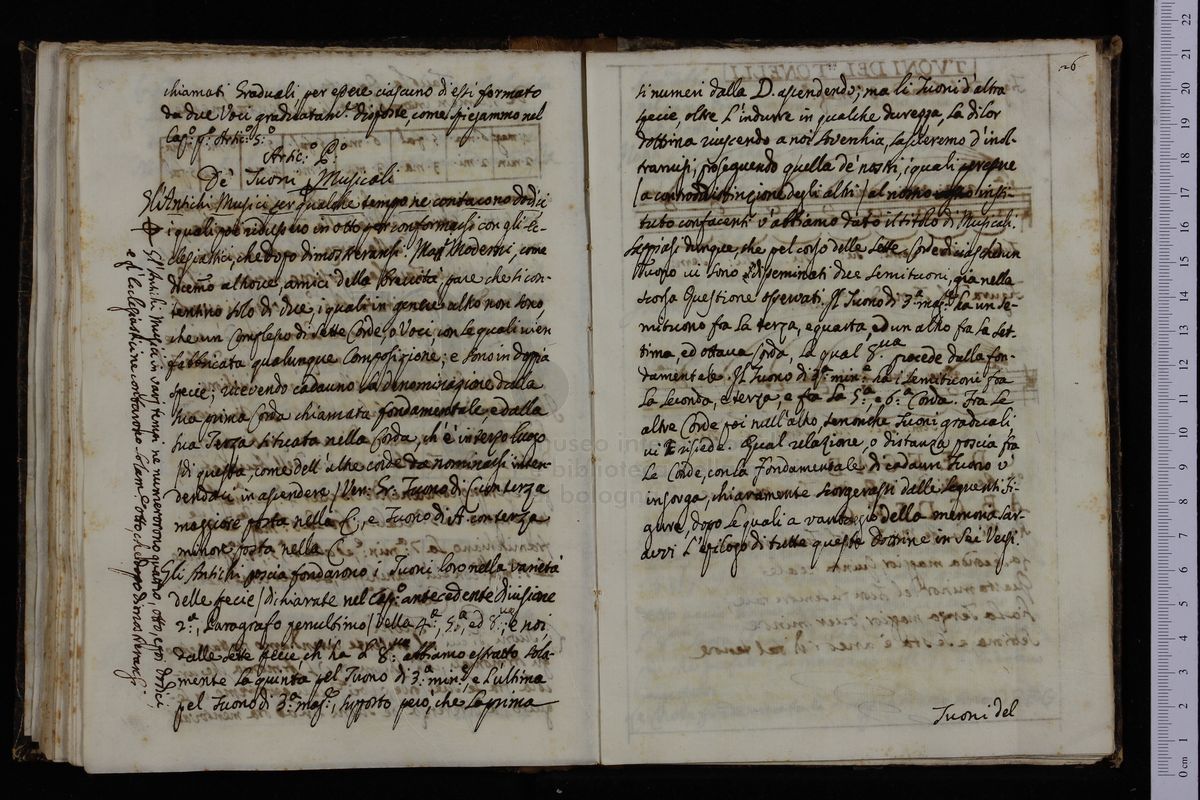 chiamati Graduali per essere ciascuno di essi formato
da due Voci graduatam.te disposte, come spiegammo nel
Cap.o p.o Artic.o 5.o
Artic.o
De' Tuoni Musicali
Gl'Antichi Musici per qualche tempo ne contarono dodici
i quali poi ridussero in otto per conformarsi con gli Ec-
clesiastici, che dopo dimostreransi. Ma i Moderni, come
dicemo altrove, amici della Brevità, pare che si con-
tentino solo di due, i quali in genere altro non sono,
che un Complesso di Sette Corde, o Voci, con le quali vien
fabbricata qualunque Composizione; e sono in doppia
specie; ricevendo cadauno la denominazione dalla
sua prima Corda chiamata fondamentale e dalla
sua Terza situata nella Corda, ch'è in terzo luogo
(di questa, come dell'altre corde da nominarsi inten-
dendosi in ascendere) Ver. Gr. Tuono di C con terza
maggiore posta nella E, e Tuono di A con terza
minore posta nella C.
Gli Antichi poscia fondarono i Tuoni loro nella varietà
delle specie (dichiarate nel Cap.o antecedente divisione
2.a, Paragrafo penultimo) della 4.a, 5.a ed 8.va; e noi
dalle Sette specie ch'ha l'8.va abbiamo estratto sola-
mente la quinta pel Tuono di 3.a min.e e l'ultima
pel Tuono di 3.a mag.e, supposto però, che la prima
Gl'Antichi Musici in varj tempi ne numerorono quattro, otto, e poi dodici,
e gl'Eclesiastici ne contavano solam.e otto, che dopo dimostreransi
26
si numeri dalla D. ascendendo; ma li Tuoni d'altra
specie, oltre l'indurre in qualche durezza, la di lor
dottrina riuscendo a noi soverchia, lasceremo d'inol-
trarvisi, proseguendo quella de' nostri, i quali perchè
(a controdistinzione degli altri) al nostro insti-
tuto confacenti v'abbiamo dato il titolo di Musicali.
Seppiasi dunque, che pel corso delle Sette Corde di ciaschedun
Tuono vi sono disseminati due Semituoni, già nella
scorsa Questione osservati. Il Tuono di 3.a mag.e ha un Se-
mituono fra la terza, e quarta ed un altro fra la Set-
tima ed ottava Corda, la qual 8.va procede dalla fon-
damentale. Il Tuono di 3.a min.e ha i Semituoni fra
la Seconda, e terza e fra la 5.a e 6.a Corda. Fra le
altre Corde poi null'altro, se non che Tuoni graduali
vi risiede. Qual relazione, o distanza poscia fra
le Corde, con la Fondamentale di cadaun Tuono v'
insorga, chiaramente scorgerassi dalle seguenti Fi-
gure, dopo le quali a vantaggio della memoria dar-
ovvi l'epilogo di tutte queste dottrine in Sei Versi.
Tuoni del